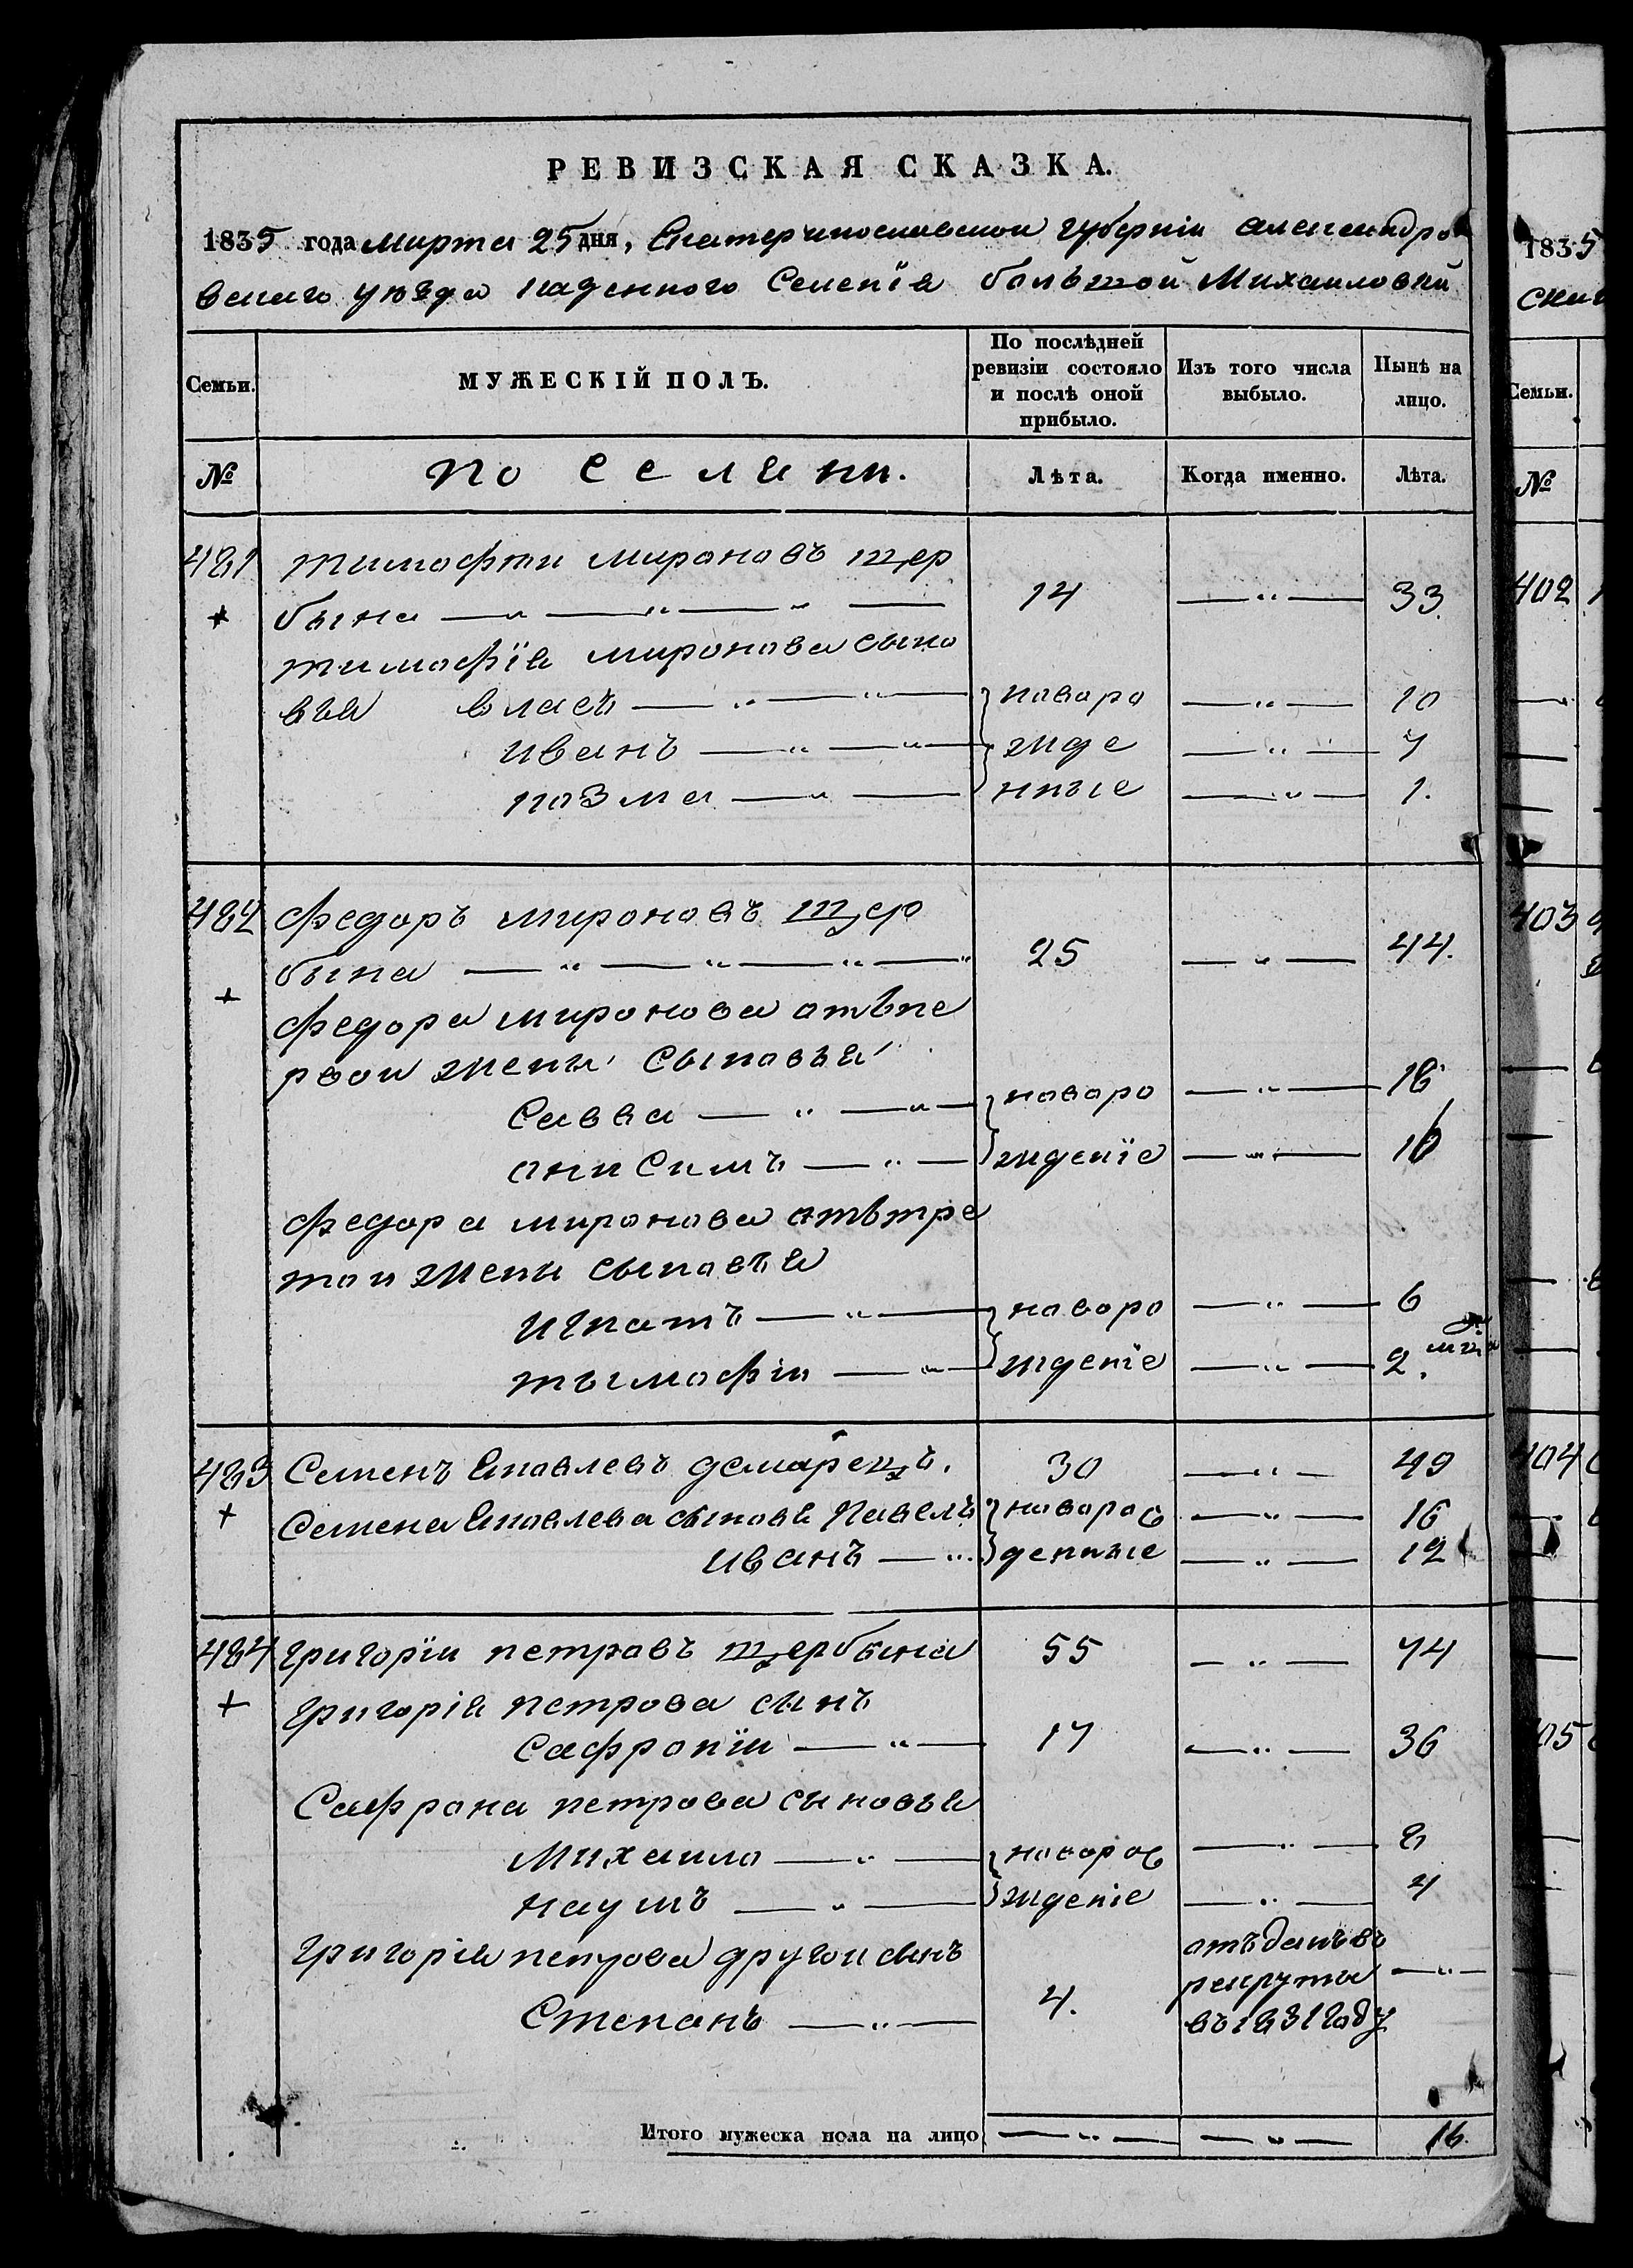 РЕВИЗСКАЯ СКАЗКА.
1835 года марта 25 дня, Екатеринославской губернiи александро
вскаго уѣзда казенного Селенiя большой Михаиловки
Семьи.
МУЖЕСКIЙ ПОЛЪ.
По послѣдней ревизiи состояло и послѣ оной прибыло.
Изъ того числа выбыло.
Нынѣ на лицо.
№
по селяни.
Лѣта.
Когда именно.
Лѣта.
481 тимофти мироновъ щер
бына 14 33.
тимофїя миронова сыно
вья власъ новоро 10
иванъ жде 7
козма нные 1.
482 федоръ мироновъ щер
бына 25 44.
федора миронова отъпе
рвои жены сыновья
Савва новоро 18
анисимъ жденїе 16
федора миронова отътре
тои жены сыновья
игнатъ новоро 6
тымофiи жденiе 2.
483 Семенъ Яковлевъ демарецъ. 30 49
Семена Яковлева сыновя Павелъ новорож 16
иванъ денные 12
484 григорїи петровъ щербына 55 74
григорiя петрова сынъ
Сафронїи 17 36
Сафрона петрова сыновья
Михаило новорож 8
наумъ жденiе 4
григорiя петрова другои сынъ
Степанъ 4. отъданъ въ
рекруты
въ 1831 году
Итого мужеска пола на лицо 16.
1835
ски
Семьи.
№
402
403
404
405